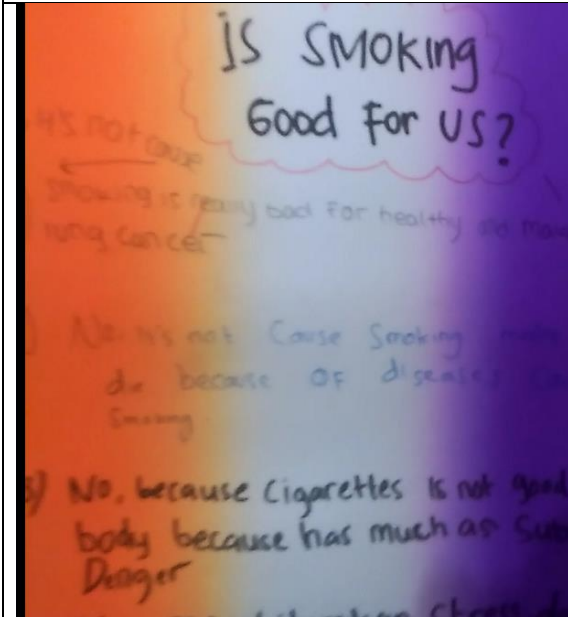 is SMOKing
Good For US?
it's not cause
smoking is really bad for healthy
lung cancer
No it's not Cause Smoking
die because OF diseases
Smoking
3) No, because Cigarettes is not good
body because has much as
Denger